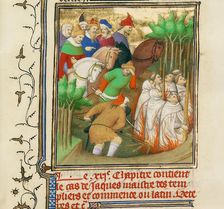 Chapitre contient
le cas de Jaques maistre des tem
pliers et commence ou latin.